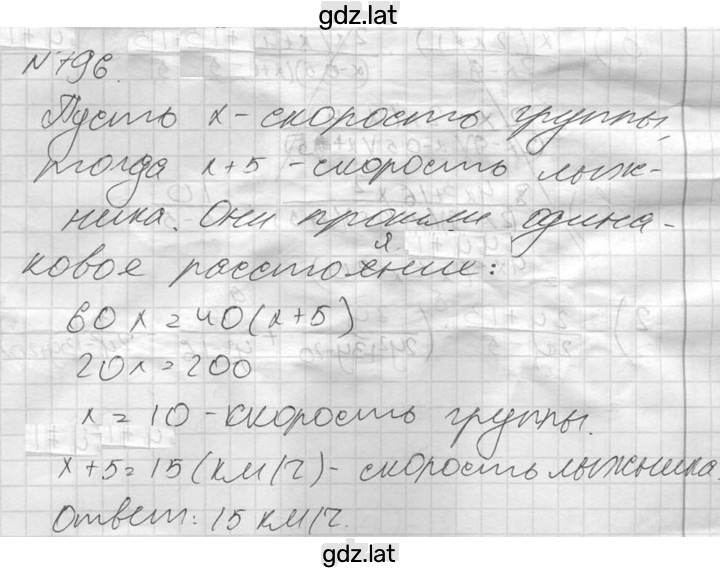 gdz.lat
N 796.
Пусть x - скорость группы,
тогда x+5 - скорость лыж-
ника. Они прошли одина-
ковое расстояние:
60x=40(x+5)
20x=200
x=10 - скорость группы.
x+5=15(км/ч) - скорость лыжника.
Ответ: 15 км/ч.
gdz.lat